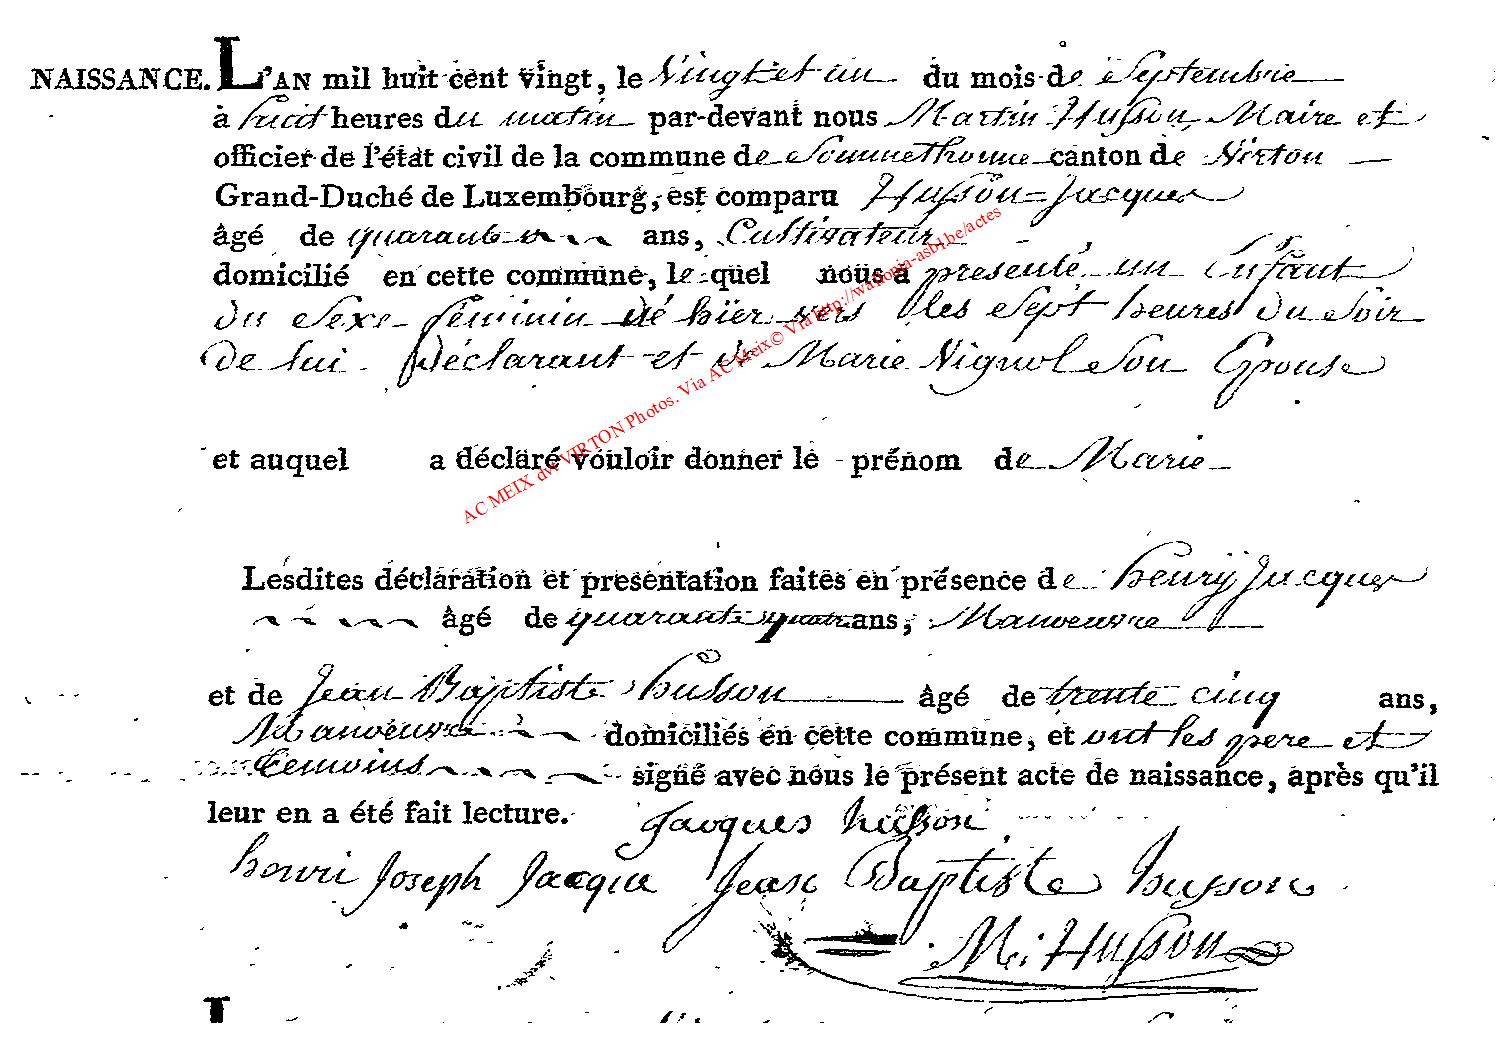 NAISSANCE. L'AN mil huit cent vingt, le Vingt et un du mois de Septembre
à huit heures du matin par-devant nous Martin Husson, Maire et
officier de l'état civil de la commune de Sommethonne canton de Virton
Grand-Duché de Luxembourg, est comparu Husson=Jacques
âgé de quarante ans, Cultivateur
domicilié en cette commune, le quel nous a presenté un Enfant
du Sexe feminin né hier vers les Sept heures du Soir
de lui Déclarant et de Marie Nignol Son Epouse
et auquel a déclaré vouloir donner le prénom de Marie
Lesdites déclaration et presentation faites en présence de henry Jacques
âgé de quarante quatre ans, Manoeuvre
et de Jean Baptiste husson âgé de trente cinq ans,
Manoeuvre domiciliés en cette commune, et ont les pere et
temoins signé avec nous le présent acte de naissance, après qu'il
leur en a été fait lecture. Jacques husson
henri Joseph Jacque Jean Baptiste husson
M. Husson
AC MEIX dvt VIRTON Photos. Via AC Meix© Via http://wallonia-asbl.be/actes